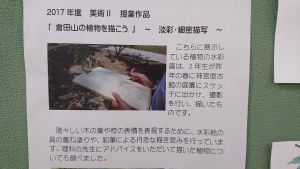 2017年度 美術Ⅱ 授業作品
「倉田山の植物を描こう」 ～ 淡彩・細密描写 ～
こちらに展示し
ている植物の水彩
画は、2年生が昨
年の春に神宮徴古
館の庭園にスケッ
チに出かけ、撮影
を行い、描いたも
のです。
瑞々しい木の葉や枝の表情を表現するために、水彩絵の
具の重ね塗りや、鉛筆による丹念な描き込みを行っていま
す。理科の先生にアドバイスをいただいて描いた植物につ
いても調べました。